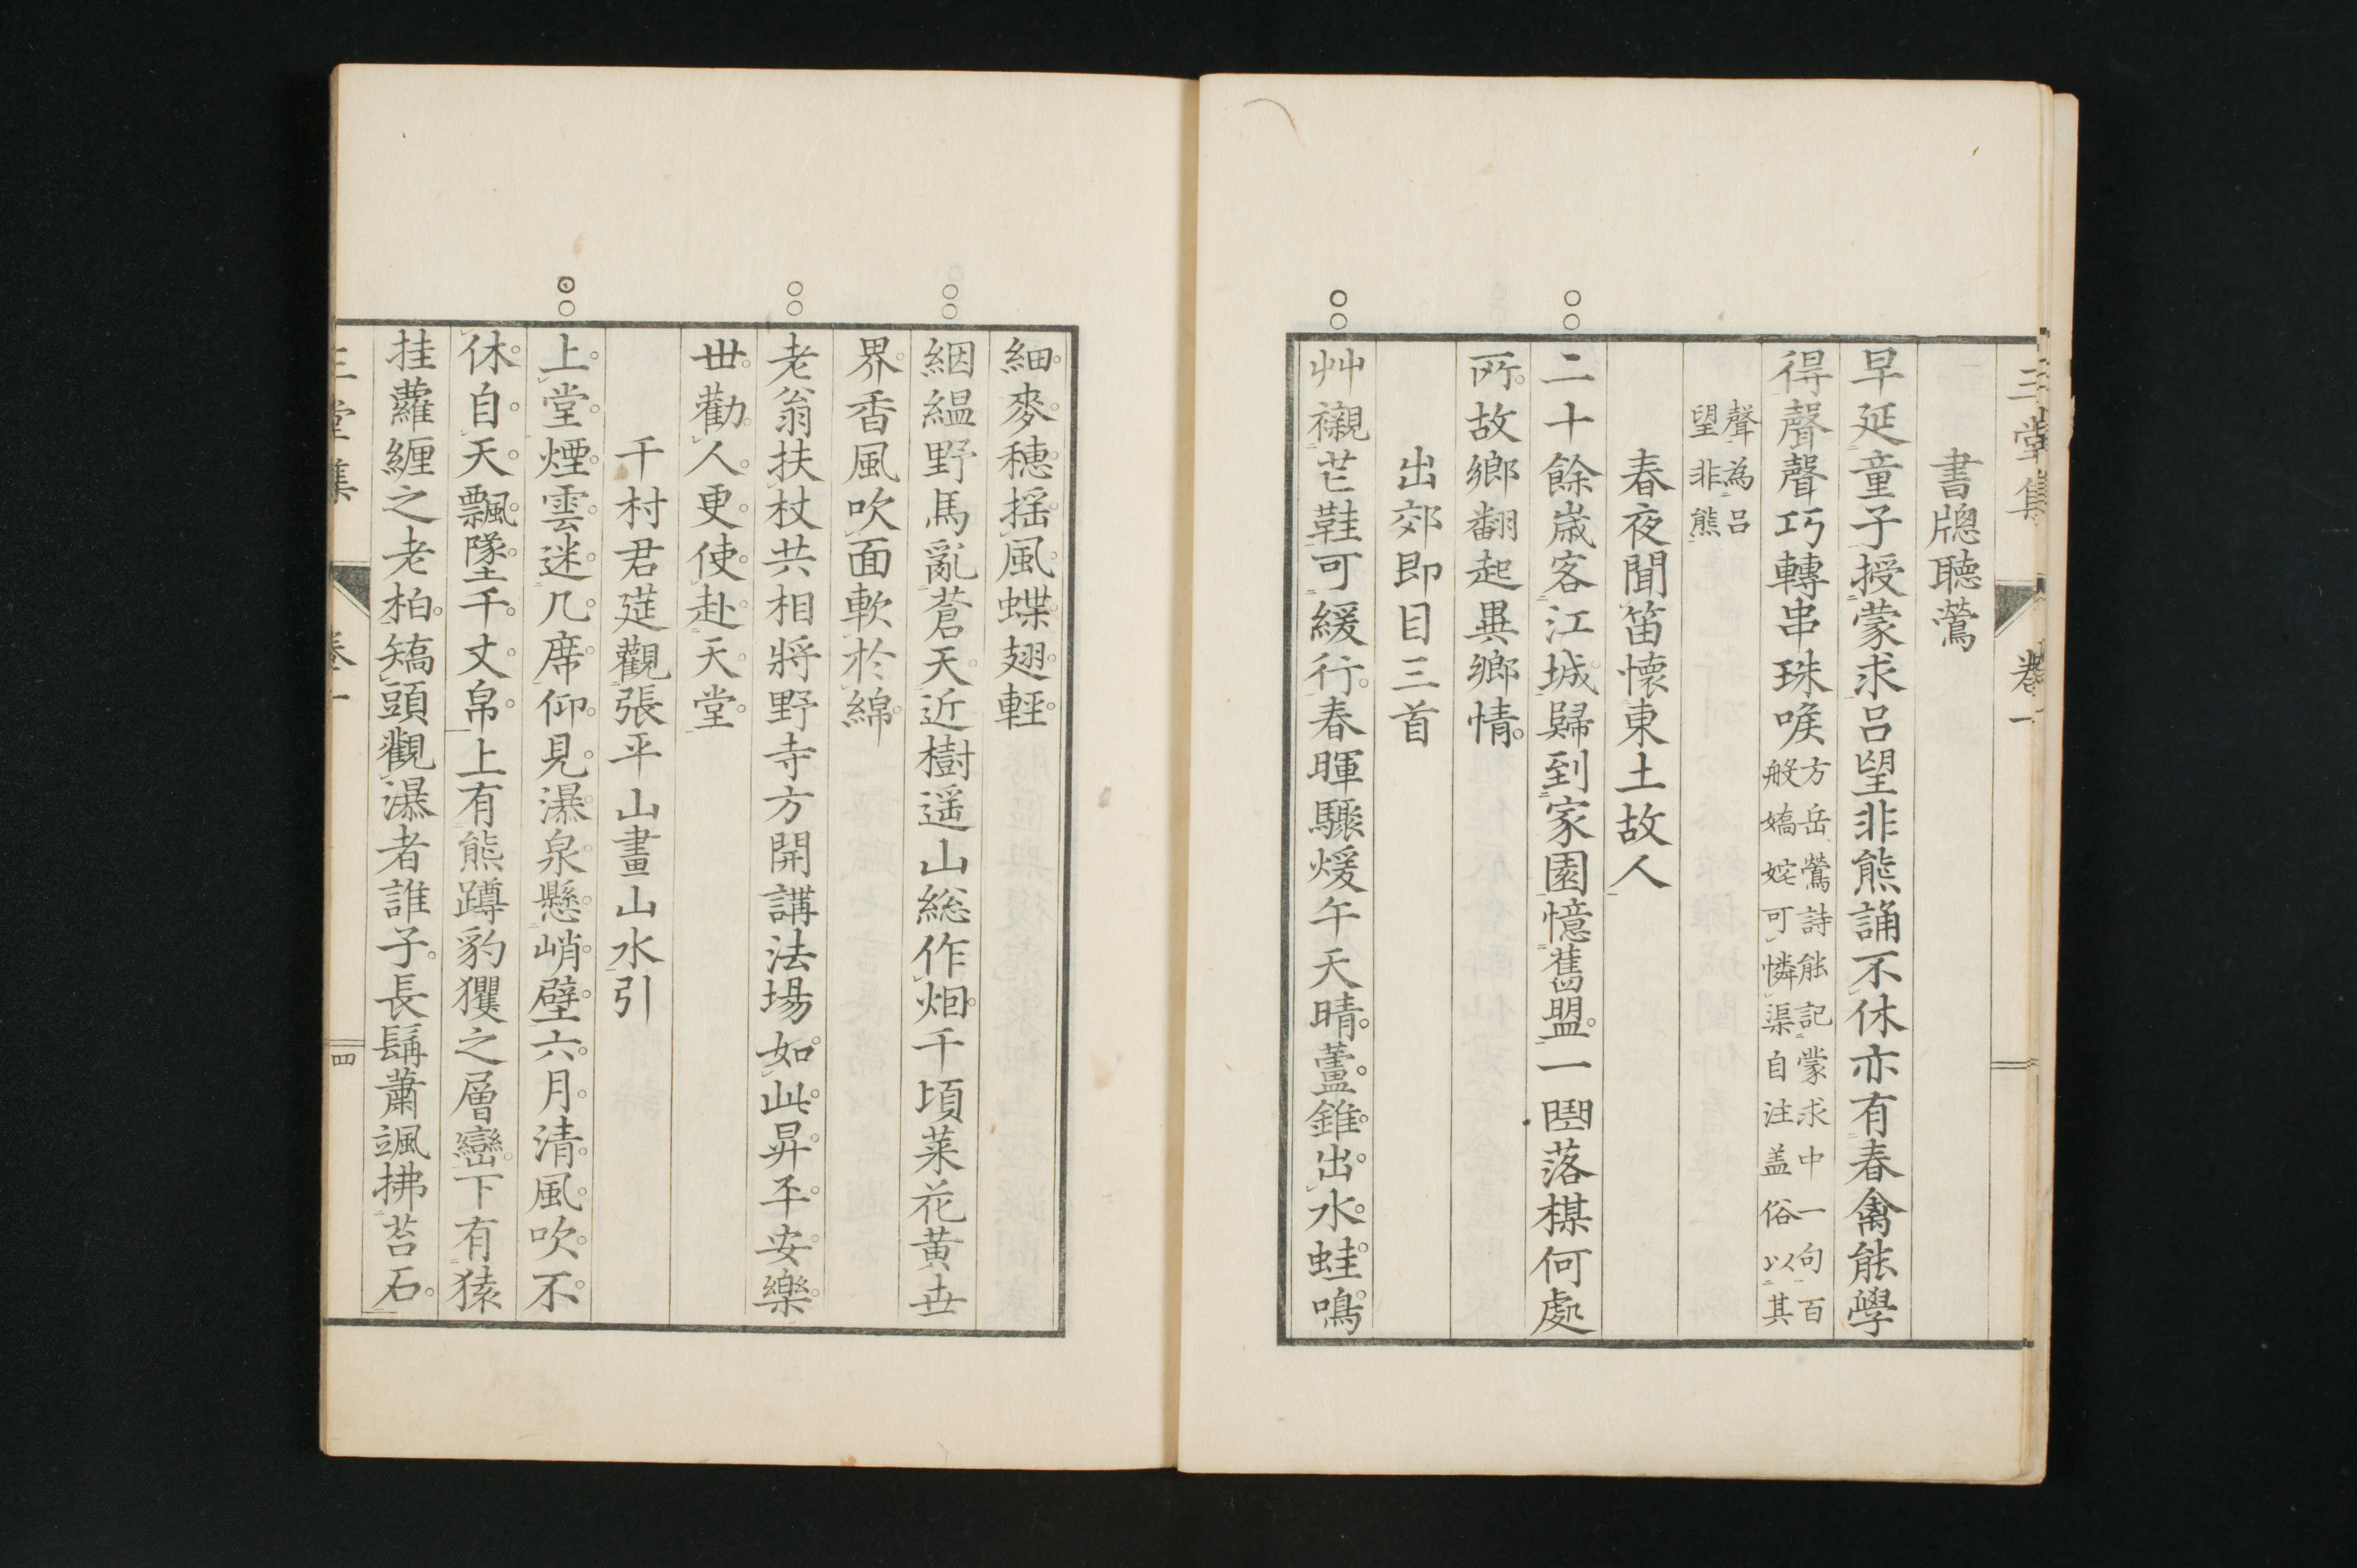 三堂集 卷一
書牕聽鶯
早延童子授蒙求呂望非熊誦不休亦有春禽能學
得聲聲巧轉串珠喉方岳鶯詩能記蒙求中一句百
般嬌姹可憐渠自注盖俗以其
聲為呂
望非熊
春夜聞笛懷東土故人
二十餘歲客江城歸到家園憶舊盟一闋落楳何處
所故鄉翻起異鄉情
出郊即目三首
艸襯芒鞋可緩行春暉驟煖午天晴蘆錐出水蛙鳴
細麥穗揺風蝶翅輕
絪縕野馬亂蒼天近樹遥山総作烟千頃菜花黃世
界香風吹面軟於綿
老翁扶杖共相將野寺方開講法場如此昇平安樂
世勸人更使赴天堂
千村君莚觀張平山畫山水引
上堂煙雲迷几席仰見瀑泉懸峭壁六月清風吹不
休自天飄墜千丈帛上有熊蹲豹玃之層巒下有猿
挂蘿纏之老柏矯頭觀瀑者誰子長髯蕭颯拂苔石
三堂集 卷一 四